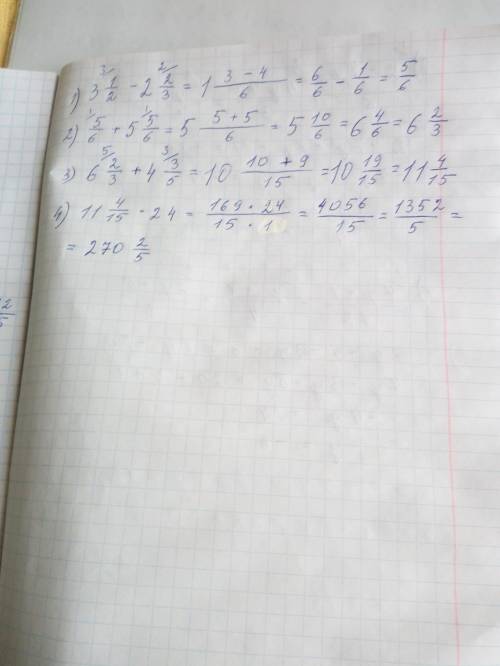 1) 3 3/ 1/2 - 2 2/ 2/3 = 1 (3 - 4)/6 = 6/6 - 1/6 = 5/6
2) 1/ 5/6 + 5 1/ 5/6 = 5 (5 + 5)/6 = 5 10/6 = 6 4/6 = 6 2/3
3) 6 5/ 2/3 + 4 3/ 3/5 = 10 (10 + 9)/15 = 10 19/15 = 11 4/15
4) 11 4/15 · 24 = (169 · 24)/(15 · 1) = 4056/15 = 1352/5 =
= 270 2/5